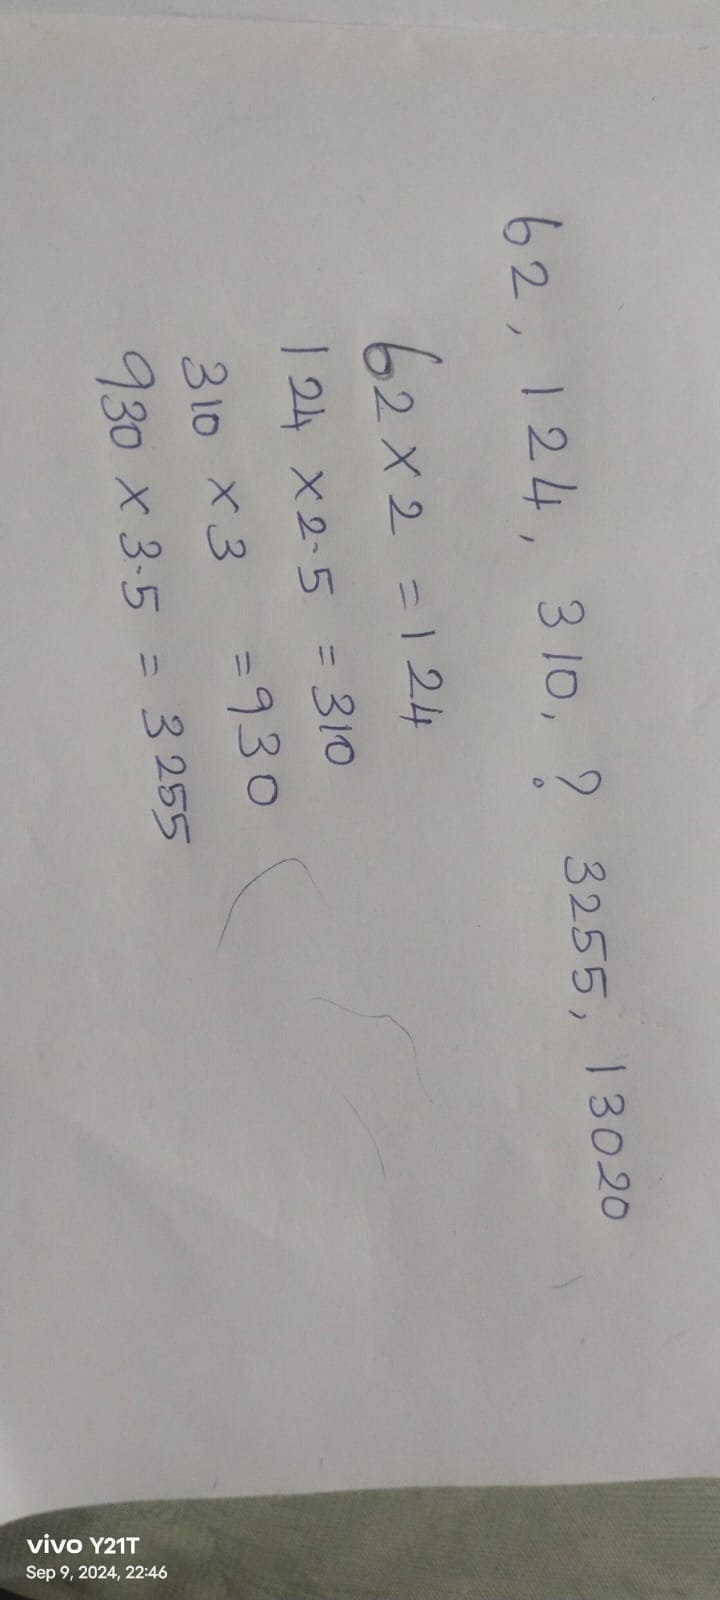 62, 124, 310, ? 3255, 13020
62 x 2 = 124
124 x 2.5 = 310
310 x 3 = 930
930 x 3.5 = 3255
vivo Y21T
Sep 9, 2024, 22:46